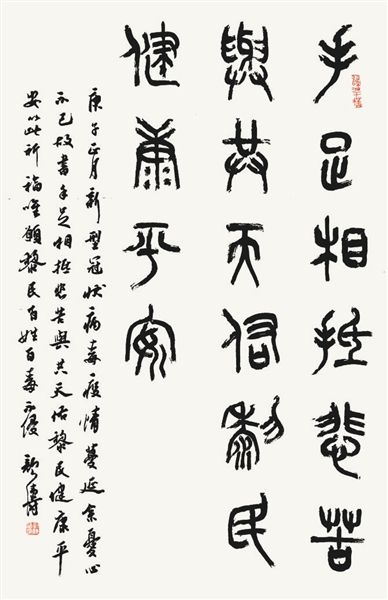 手足相抵悲苦
與共天佑黎民
健康平安
庚子正月新型冠状病毒疫情蔓延余憂心
不已故書手足相抵悲苦與共天佑黎民健康平
安以此祈福唯願黎民百姓百毒不侵